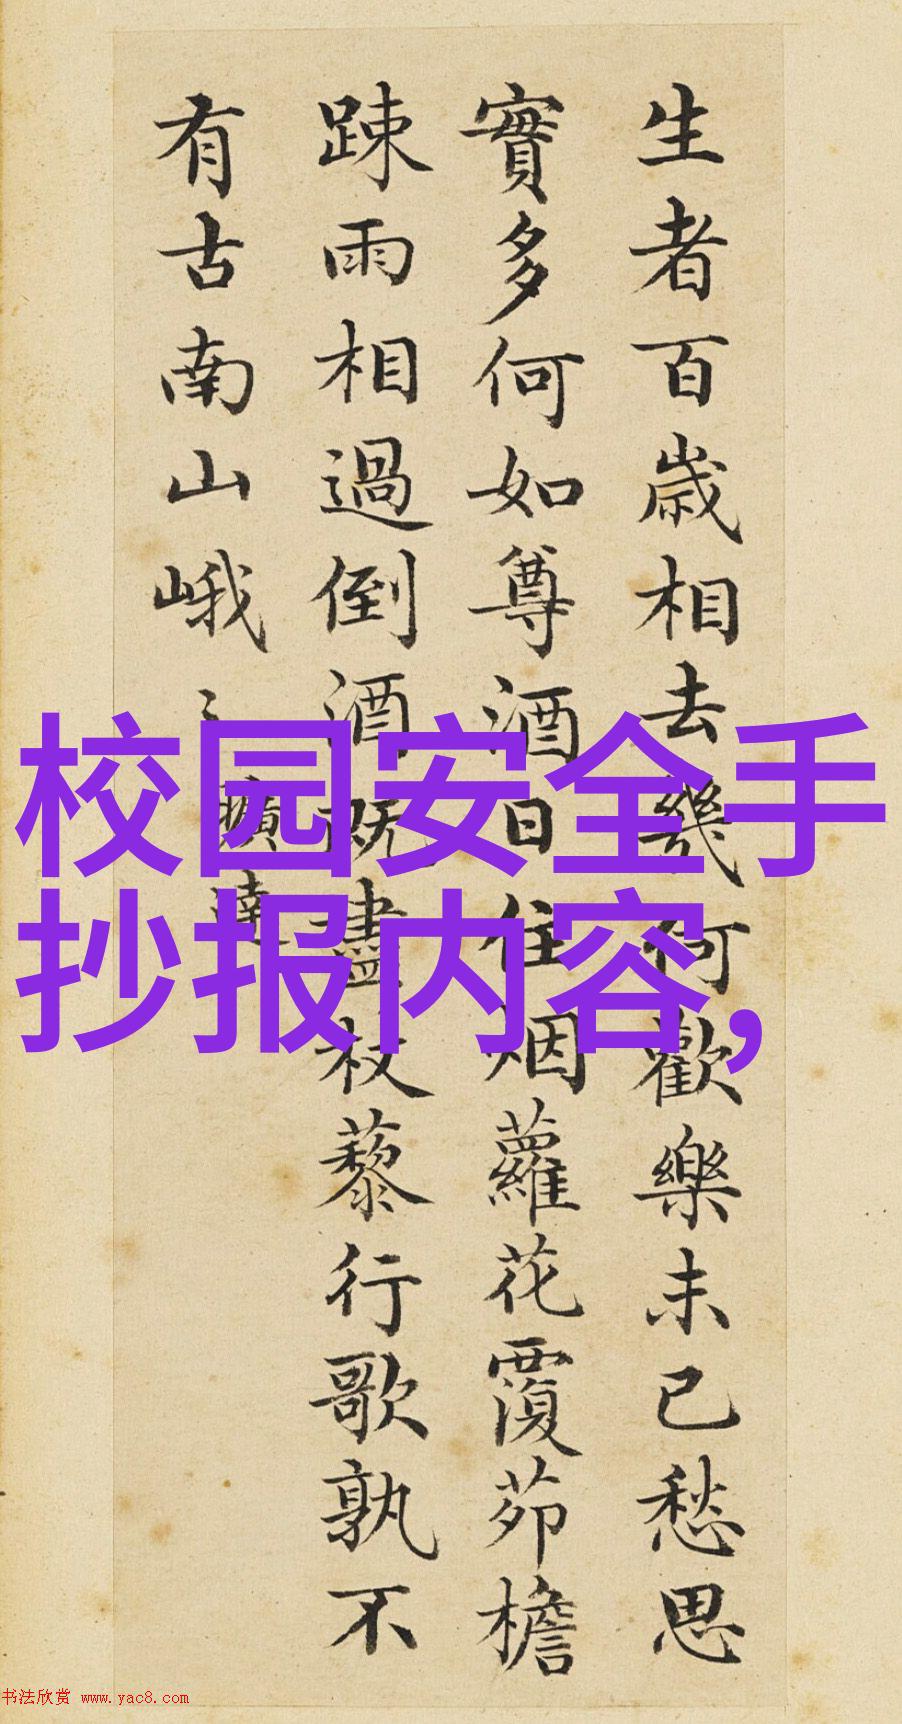 生者百歲相去幾何歡樂未已愁思
實多何如尊酒日住烟蘿花覆茆檐
踈雨相過倒酒既盡杖藜行歌孰不
有古南山峨〻
曠達
校园安全手
抄报内容,
书法欣赏 www.yac8.com